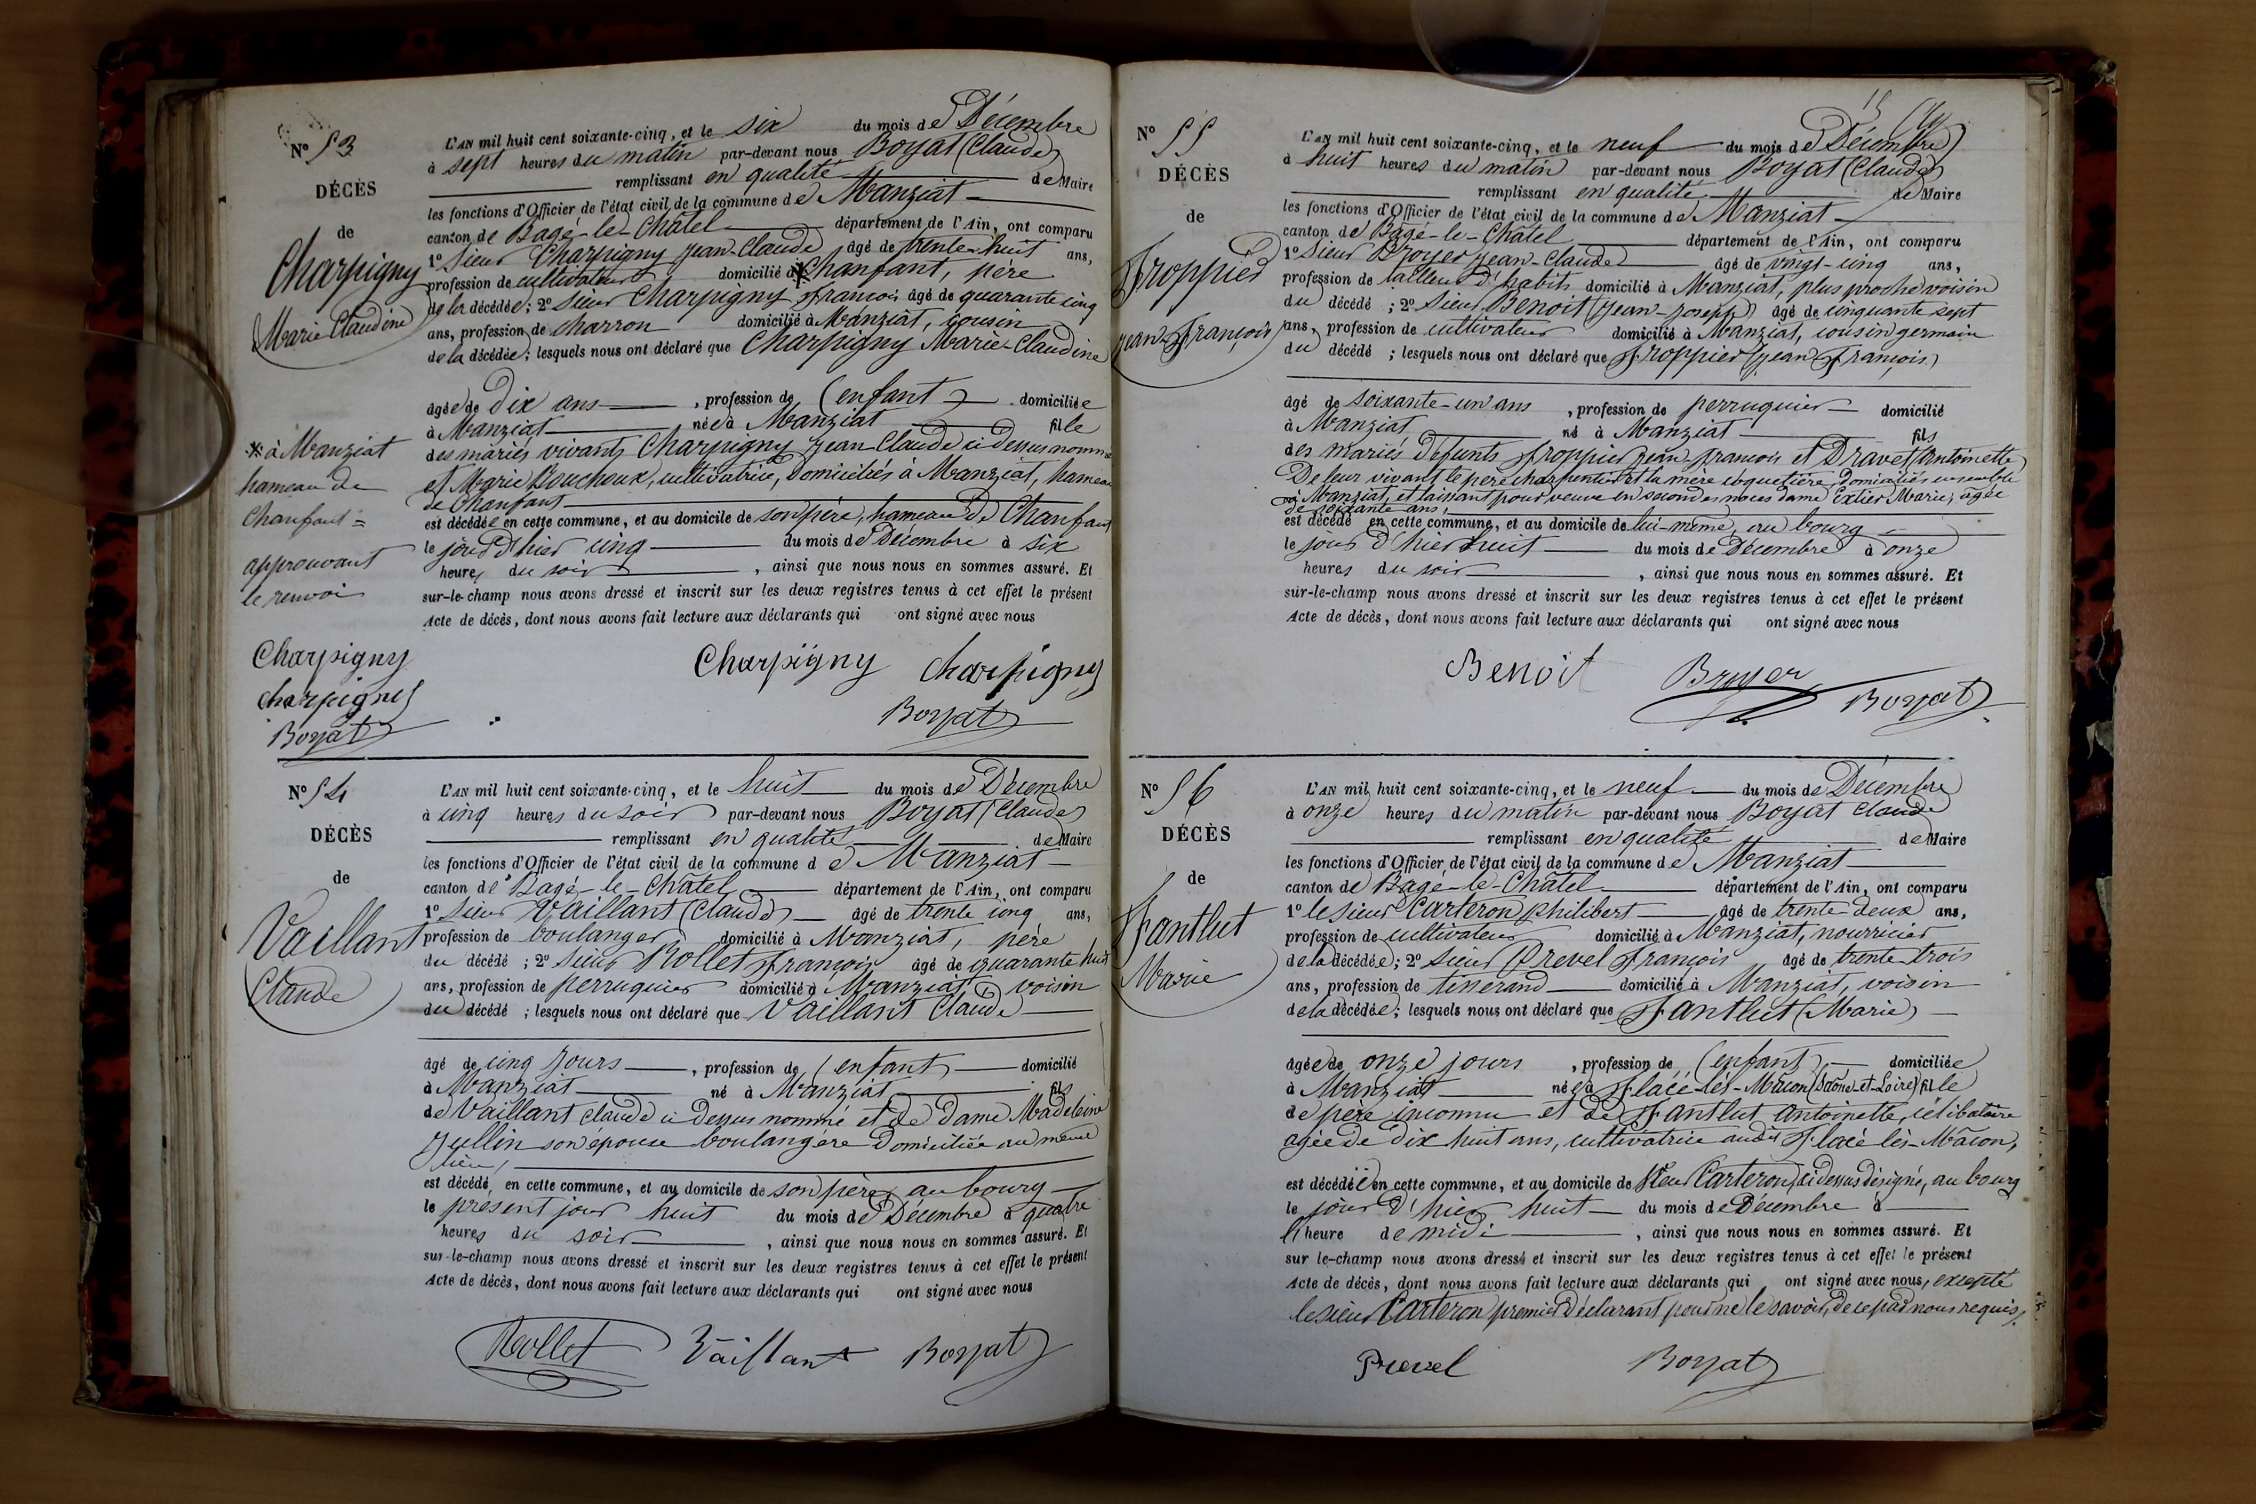 N° 53
DÉCÈS
de
Charpigny
Marie Claudine
L'AN mil huit cent soixante-cinq, et le six du mois de Décembre
à sept heures du matin par-devant nous Boyat (Claude)
remplissant en qualité de Maire
les fonctions d'Officier de l'état civil de la commune de Manziat
canton de Bagé-le-Châtel département de l'Ain, ont comparu
1° Sieur Charpigny Jean-Claude âgé de trente-huit ans,
profession de cultivateur domicilié à * Chanfant, père
de la décédée; 2° Sieur Charpigny François âgé de quarante cinq
ans, profession de charron domicilié à Manziat, cousin
de la décédée; lesquels nous ont déclaré que Charpigny Marie-Claudine
âgée de dix ans, profession de (enfant) domiciliée
à Manziat née à Manziat fille
des mariés vivants Charpigny Jean-Claude ci dessus nommé
et Marie Bouchoux, cultivatrice, domiciliés à Manziat, hameau
de Chanfant
est décédée en cette commune, et au domicile de son père, hameau de Chanfant
le jour d'hier cinq du mois de Décembre à six
heures du soir, ainsi que nous nous en sommes assuré. Et
sur-le-champ nous avons dressé et inscrit sur les deux registres tenus à cet effet le présent
Acte de décès, dont nous avons fait lecture aux déclarants qui ont signé avec nous
* à Manziat
hameau de
Chanfant =
approuvant
le renvoi
Charpigny
charpigny
Boyat
Charpigny charpigny
Boyat
N° 54
DÉCÈS
de
Vaillant
Claude
L'AN mil huit cent soixante-cinq, et le huit du mois de Décembre
à cinq heures du soir par-devant nous Boyat (Claude)
remplissant en qualité de Maire
les fonctions d'Officier de l'état civil de la commune de Manziat
canton de Bagé-le-Châtel département de l'Ain, ont comparu
1° Sieur Vaillant (Claude) âgé de trente cinq ans,
profession de boulanger domicilié à Manziat, père
du décédé; 2° Sieur Rollet François âgé de quarante huit
ans, profession de perruquier domicilié à Manziat, voisin
du décédé; lesquels nous ont déclaré que Vaillant Claude
âgé de cinq jours, profession de (enfant) domicilié
à Manziat né à Manziat fils
de Vaillant Claude ci dessus nommé et de Dame Madeleine
Jullin son épouse boulangère domiciliée au même
lieu,
est décédé en cette commune, et au domicile de son père, au bourg
le présent jour huit du mois de Décembre à quatre
heures du soir, ainsi que nous nous en sommes assuré. Et
sur-le-champ nous avons dressé et inscrit sur les deux registres tenus à cet effet le présent
Acte de décès, dont nous avons fait lecture aux déclarants qui ont signé avec nous
Rollet Vaillant Boyat
N° 55
DÉCÈS
de
Froppier
Jean-François
L'AN mil huit cent soixante-cinq, et le neuf du mois de Décembre
à huit heures du matin par-devant nous Boyat (Claude)
remplissant en qualité de Maire
les fonctions d'Officier de l'état civil de la commune de Manziat
canton de Bagé-le-Châtel département de l'Ain, ont comparu
1° Sieur Broyer Jean-Claude âgé de vingt-cinq ans,
profession de tailleur d'habits domicilié à Manziat, plus proche voisin
du décédé; 2° Sieur Benoit (Jean-Joseph) âgé de cinquante sept
ans, profession de cultivateur domicilié à Manziat, cousin germain
du décédé; lesquels nous ont déclaré que Froppier (Jean François)
âgé de soixante-un ans, profession de perruquier domicilié
à Manziat né à Manziat fils
des mariés défunts Froppier Jean-François et Dravet (Antoinette)
De leur vivant le père charpentier et la mère coquetière, domiciliés ensemble
à Manziat, et laissant pour veuve en secondes noces dame Extier Marie, âgée
de soixante ans,
est décédé en cette commune, et au domicile de lui-même, au bourg
le jour d'hier huit du mois de Décembre à onze
heures du soir, ainsi que nous nous en sommes assuré. Et
sur-le-champ nous avons dressé et inscrit sur les deux registres tenus à cet effet le présent
Acte de décès, dont nous avons fait lecture aux déclarants qui ont signé avec nous
Benoit Broyer Boyat
N° 56
DÉCÈS
de
Fantlut
Marie
L'AN mil huit cent soixante-cinq, et le neuf du mois de Décembre
à onze heures du matin par-devant nous Boyat Claude
remplissant en qualité de Maire
les fonctions d'Officier de l'état civil de la commune de Manziat
canton de Bagé-le-Châtel département de l'Ain, ont comparu
1° le sieur Carteron Philibert âgé de trente-deux ans,
profession de cultivateur domicilié à Manziat, nourricier
de la décédée; 2° Sieur Prevel François âgé de trente-trois
ans, profession de tisserand domicilié à Manziat, voisin
de la décédée; lesquels nous ont déclaré que Fantlut (Marie)
âgée de onze jours, profession de (enfant) domiciliée
à Manziat née à Flacé-lès-Mâcon (Saône-et-Loire) fille
de père inconnu et de Fantlut Antoinette, célibataire
agée de dix huit ans, cultivatrice audit Flacé lès-Mâcon,
est décédée en cette commune, et au domicile de Sieur Carteron, ci dessus désigné, au bourg
le jour d'hier huit du mois de Décembre à
l'heure de midi, ainsi que nous nous en sommes assuré. Et
sur le-champ nous avons dressé et inscrit sur les deux registres tenus à cet effet le présent
Acte de décès, dont nous avons fait lecture aux déclarants qui ont signé avec nous, excepté
le sieur Carteron premier déclarant pour ne le savoir, de ce par nous requis.
Prevel Boyat